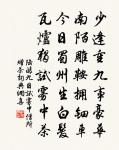 少逢重九事豪華
南陌雕鞍擁鈿車
今日蜀州生白髮
瓦爐獨試霧中茶
陸游九日試霧中僧所
贈茶詞典網書